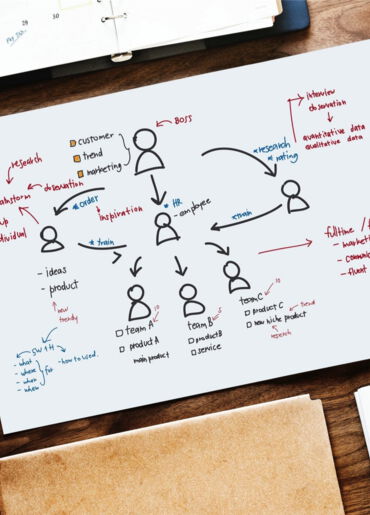 28
29
30
BOSS
customer
trend
marketing
interview
observation
quantitative data
qualitative data
*research
*rating
research
observation
*order
inspiration
* HR
- employee
*train
* train
- ideas
- product
new
trendy
5W1H
- what
- where
- when
for
- how to used.
10
team A
product A
main product
5
team B
product B
service
10
team C
product C
trend
new niche product
research
fulltime /
- fluent